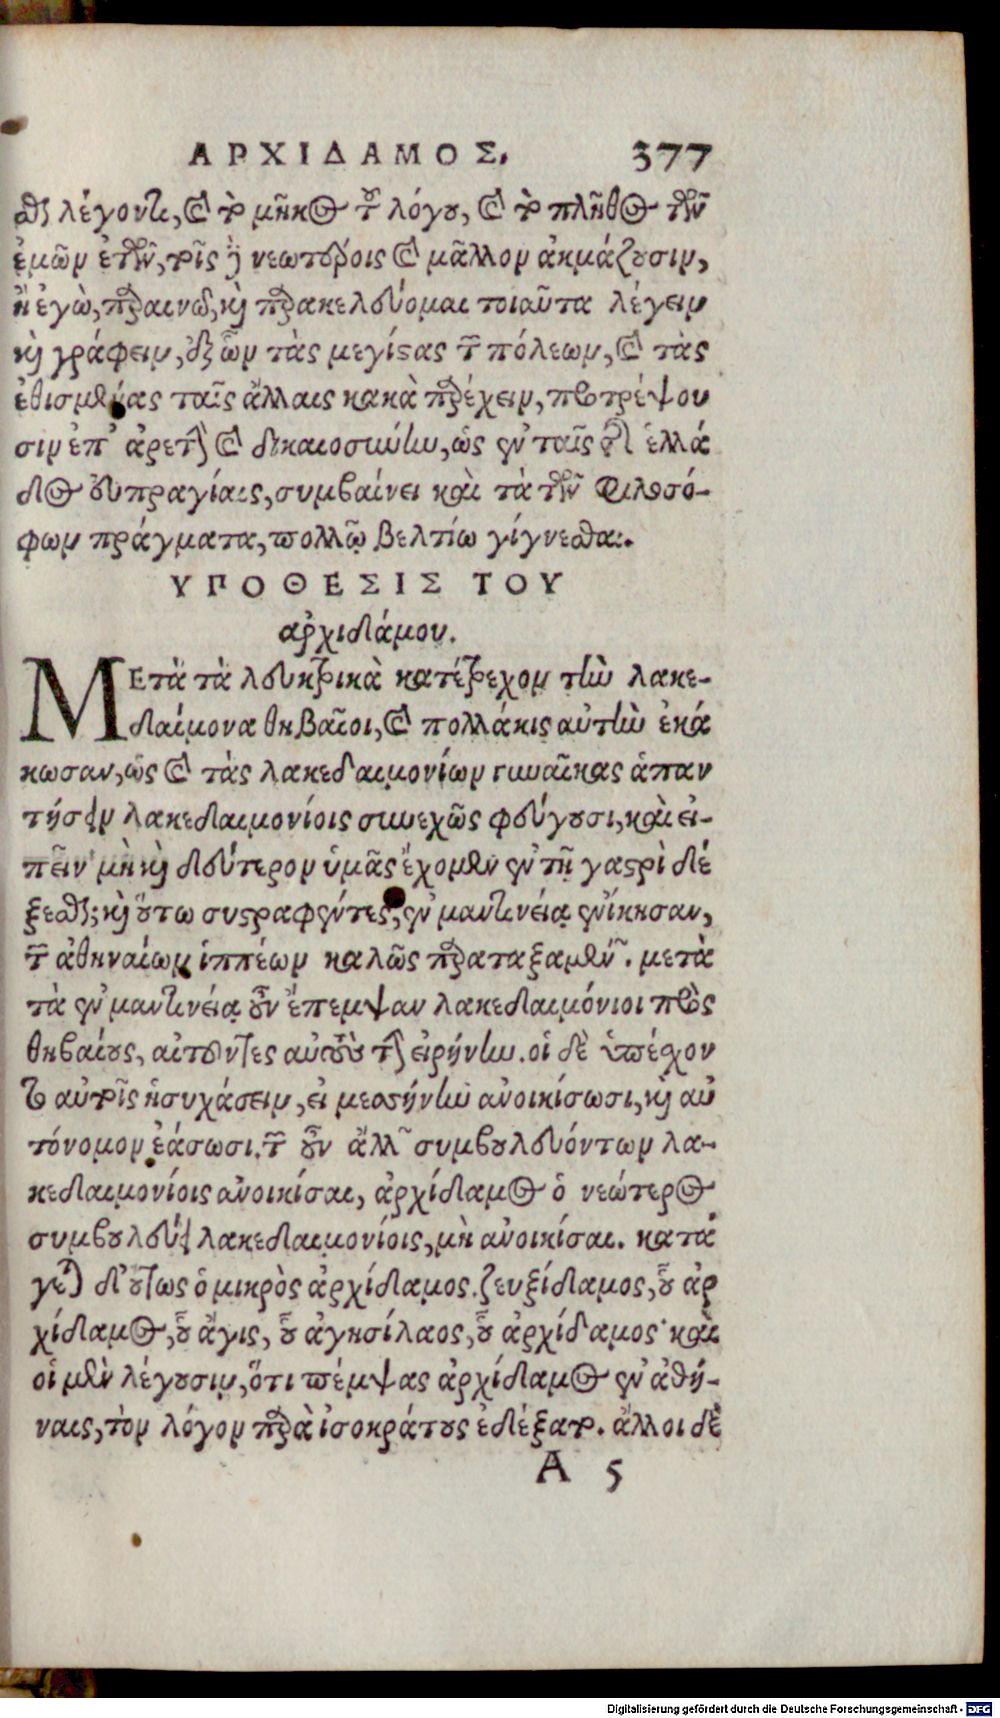 ΑΡΧΙΔΑΜΟΣ. 377
σθαι λέγοντι, καὶ τὸ μῆκος τοῦ λόγου, καὶ τὸ πλῆθος τῶν
ἐμῶν ἐτῶν, τοῖς δὲ νεωτέροις καὶ μᾶλλον ἀκμάζουσιν,
ἢ ἐγὼ, παραινῶ, καὶ παρακελεύομαι τοιαῦτα λέγειν
καὶ γράφειν, ἐξ ὧν τὰς μεγίστας τῶν πόλεων, καὶ τὰς
ἐθισμένας ταῖς ἄλλαις κακὰ παρέχειν, προτρέψου
σιν ἐπ' ἀρετὴν καὶ δικαιοσύνην, ὡς ἐν ταῖς τῆς ἑλλά
δος εὐπραγίαις, συμβαίνει καὶ τὰ τῶν φιλοσό-
φων πράγματα, πολλῷ βελτίω γίγνεσθαι.
ΥΠΟΘΕΣΙΣ ΤΟΥ
ἀρχιδάμου.
ΜΕτὰ τὰ λευκτρικὰ κατέτρεχον τὴν λακε-
δαίμονα θηβαῖοι, καὶ πολλάκις αὐτὴν ἐκά
κωσαν, ὡς καὶ τὰς λακεδαιμονίων γυναῖκας ἁπαν
τήσειν λακεδαιμονίοις συνεχῶς φεύγουσι, καὶ εἰ-
πεῖν· μὴ καὶ δεύτερον ὑμᾶς ἔχομεν ἐν τῇ γαστρὶ δέ
ξεσθαι; καὶ οὕτω συστραφέντες, ἐν μαντινείᾳ ἐνίκησαν,
τῶν ἀθηναίων ἱππέων καλῶς παραταξαμένων. μετὰ
τὰ ἐν μαντινείᾳ οὖν ἔπεμψαν λακεδαιμόνιοι πρὸς
θηβαίους, αἰτοῦντες αὐτοὺς τὴν εἰρήνην. οἱ δὲ ὑπέσχον
το αὐτοῖς ἡσυχάσειν, εἰ μεσσήνην ἀνοικίσωσι, καὶ αὐ
τόνομον ἐάσωσι. τῶν οὖν ἄλλων συμβουλευόντων λα-
κεδαιμονίοις ἀνοικίσαι, ἀρχίδαμος ὁ νεώτερος
συμβουλεύει λακεδαιμονίοις, μὴ ἀνοικίσαι. κατά
γεται δ' οὕτως ὁ μικρὸς ἀρχίδαμος. ζευξίδαμος, οὗ ἀρ
χίδαμος, οὗ ἄγις, οὗ ἀγησίλαος, οὗ ἀρχίδαμος· καὶ
οἱ μὲν λέγουσιν, ὅτι πέμψας ἀρχίδαμος ἐν ἀθή-
ναις, τὸν λόγον παρὰ ἰσοκράτους ἐδέξατο. ἄλλοι δὲ
A 5
Digitalisierung gefördert durch die Deutsche Forschungsgemeinschaft - DFG